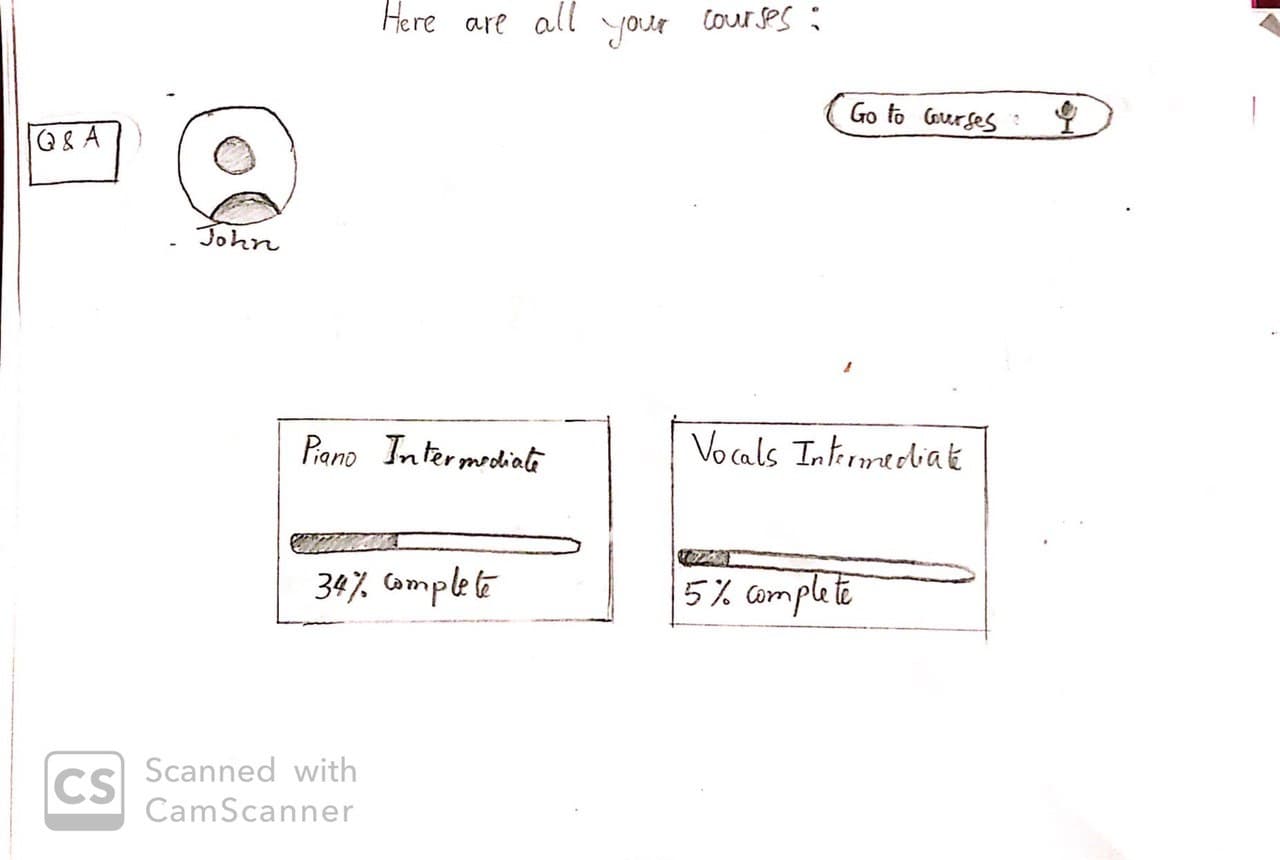 Here are all your courses :
Go to courses :
Q & A
John
Piano Intermediate
34% complete
Vocals Intermediate
5% complete
CS
Scanned with
CamScanner